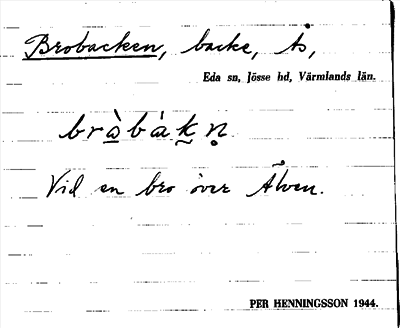 Brobacken, backe, Ås,
Eda sn, Jösse hd, Värmlands län.
bràbàkn
Vid en bro över Älven.
PER HENNINGSSON 1944.